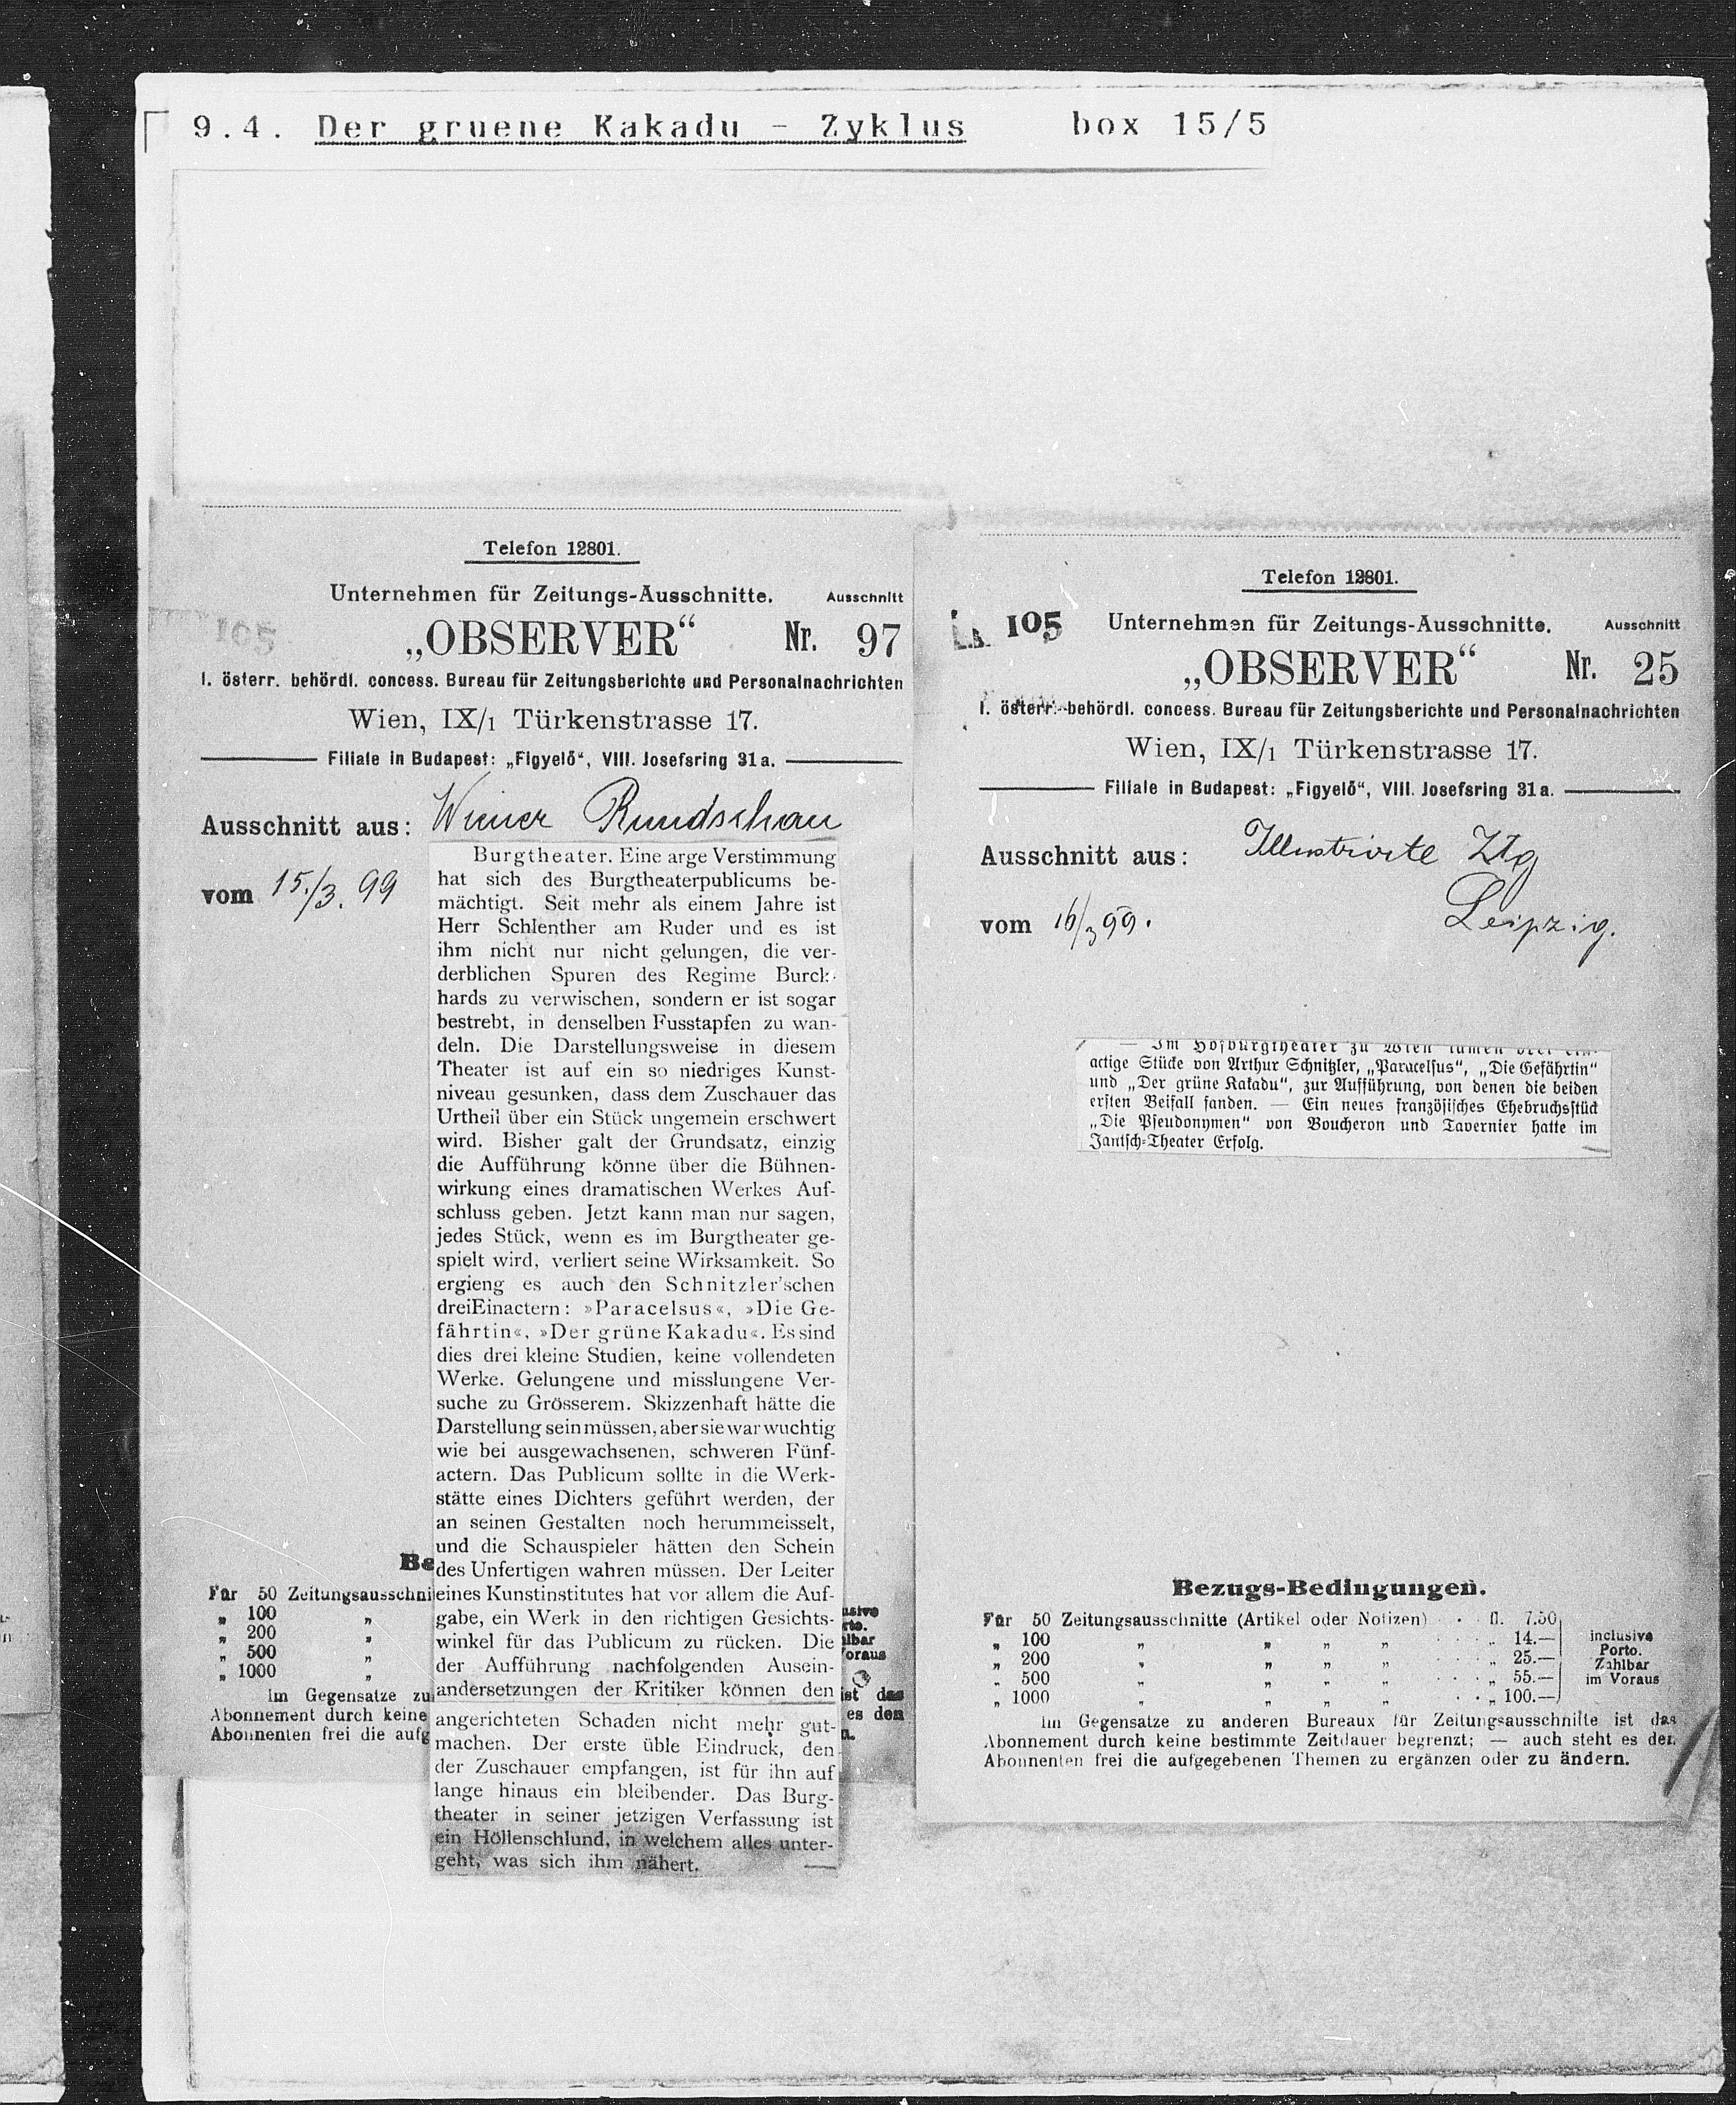 9.4. Der gruene Kakadu - Zyklus box 15/5
Telefon 12801.
105
Unternehmen für Zeitungs-Ausschnitte. Ausschnitt
„OBSERVER“ Nr. 97
I. österr. behördl. concess. Bureau für Zeitungsberichte und Personalnachrichten
Wien, IX/1 Türkenstrasse 17.
Filiale in Budapest: „Figyelő“, VIII. Josefsring 31a.
Ausschnitt aus: Wiener Rundschau
vom 15./3. 99
Burgtheater. Eine arge Verstimmung
hat sich des Burgtheaterpublicums be-
mächtigt. Seit mehr als einem Jahre ist
Herr Schlenther am Ruder und es ist
ihm nicht nur nicht gelungen, die ver-
derblichen Spuren des Regime Burck-
hards zu verwischen, sondern er ist sogar
bestrebt, in denselben Fusstapfen zu wan-
deln. Die Darstellungsweise in diesem
Theater ist auf ein so niedriges Kunst-
niveau gesunken, dass dem Zuschauer das
Urtheil über ein Stück ungemein erschwert
wird. Bisher galt der Grundsatz, einzig
die Aufführung könne über die Bühnen-
wirkung eines dramatischen Werkes Auf-
schluss geben. Jetzt kann man nur sagen,
jedes Stück, wenn es im Burgtheater ge-
spielt wird, verliert seine Wirksamkeit. So
ergieng es auch den Schnitzler'schen
drei Einactern: »Paracelsus«, »Die Ge-
fährtin«, »Der grüne Kakadu«. Es sind
dies drei kleine Studien, keine vollendeten
Werke. Gelungene und misslungene Ver-
suche zu Grösserem. Skizzenhaft hätte die
Darstellung sein müssen, aber sie war wuchtig
wie bei ausgewachsenen, schweren Fünf-
actern. Das Publicum sollte in die Werk-
stätte eines Dichters geführt werden, der
an seinen Gestalten noch herummeisselt,
und die Schauspieler hätten den Schein
des Unfertigen wahren müssen. Der Leiter
eines Kunstinstitutes hat vor allem die Auf-
gabe, ein Werk in den richtigen Gesichts-
winkel für das Publicum zu rücken. Die
der Aufführung nachfolgenden Ausein-
andersetzungen der Kritiker können den
angerichteten Schaden nicht mehr gut-
machen. Der erste üble Eindruck, den
der Zuschauer empfangen, ist für ihn auf
lange hinaus ein bleibender. Das Burg-
theater in seiner jetzigen Verfassung ist
ein Höllenschlund, in welchem alles unter-
geht, was sich ihm nähert.
Be
Für 50 Zeitungsausschni
„ 100 „
„ 200 „
„ 500 „
„ 1000 „
Im Gegensatze zu
Abonnement durch keine
Abonnenten frei die aufg
usive
rto.
lbar
oraus
ist das
es den
n.
Telefon 12801.
105
Unternehmen für Zeitungs-Ausschnitte. Ausschnitt
„OBSERVER“ Nr. 25
I. österr. behördl. concess. Bureau für Zeitungsberichte und Personalnachrichten
Wien, IX/1 Türkenstrasse 17.
Filiale in Budapest: „Figyelő“, VIII. Josefsring 31a.
Ausschnitt aus: Illustrirte Ztg
Leipzig.
vom 16/3 99.
— Im Hofburgtheater zu Wien kamen drei ein-
actige Stücke von Arthur Schnitzler, „Paracelsus“, „Die Gefährtin“
und „Der grüne Kakadu“, zur Aufführung, von denen die beiden
ersten Beifall fanden. — Ein neues französisches Ehebruchsstück
„Die Pseudonymen“ von Boucheron und Tavernier hatte im
Jantsch-Theater Erfolg.
Bezugs-Bedingungen.
Für 50 Zeitungsausschnitte (Artikel oder Notizen) . fl. 7.50
„ 100 „ „ „ „ . . . „ 14.—
„ 200 „ „ „ „ . . . „ 25.—
„ 500 „ „ „ „ . . . „ 55.—
„ 1000 „ „ „ „ . . „ 100.—
inclusive
Porto.
Zahlbar
im Voraus
Im Gegensatze zu anderen Bureaux für Zeitungsausschnitte ist das
Abonnement durch keine bestimmte Zeitdauer begrenzt; — auch steht es den
Abonnenten frei die aufgegebenen Themen zu ergänzen oder zu ändern.